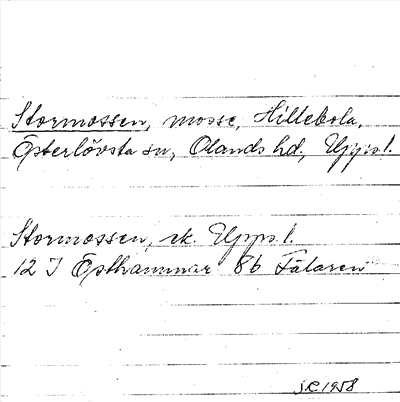 Stormossen, mosse, Hillebola,
Österlövsta sn, Olands hd, Upps.l.
Stormossen, ek. Upps.l.
12 I Östhammar 8b Fälaren
1958